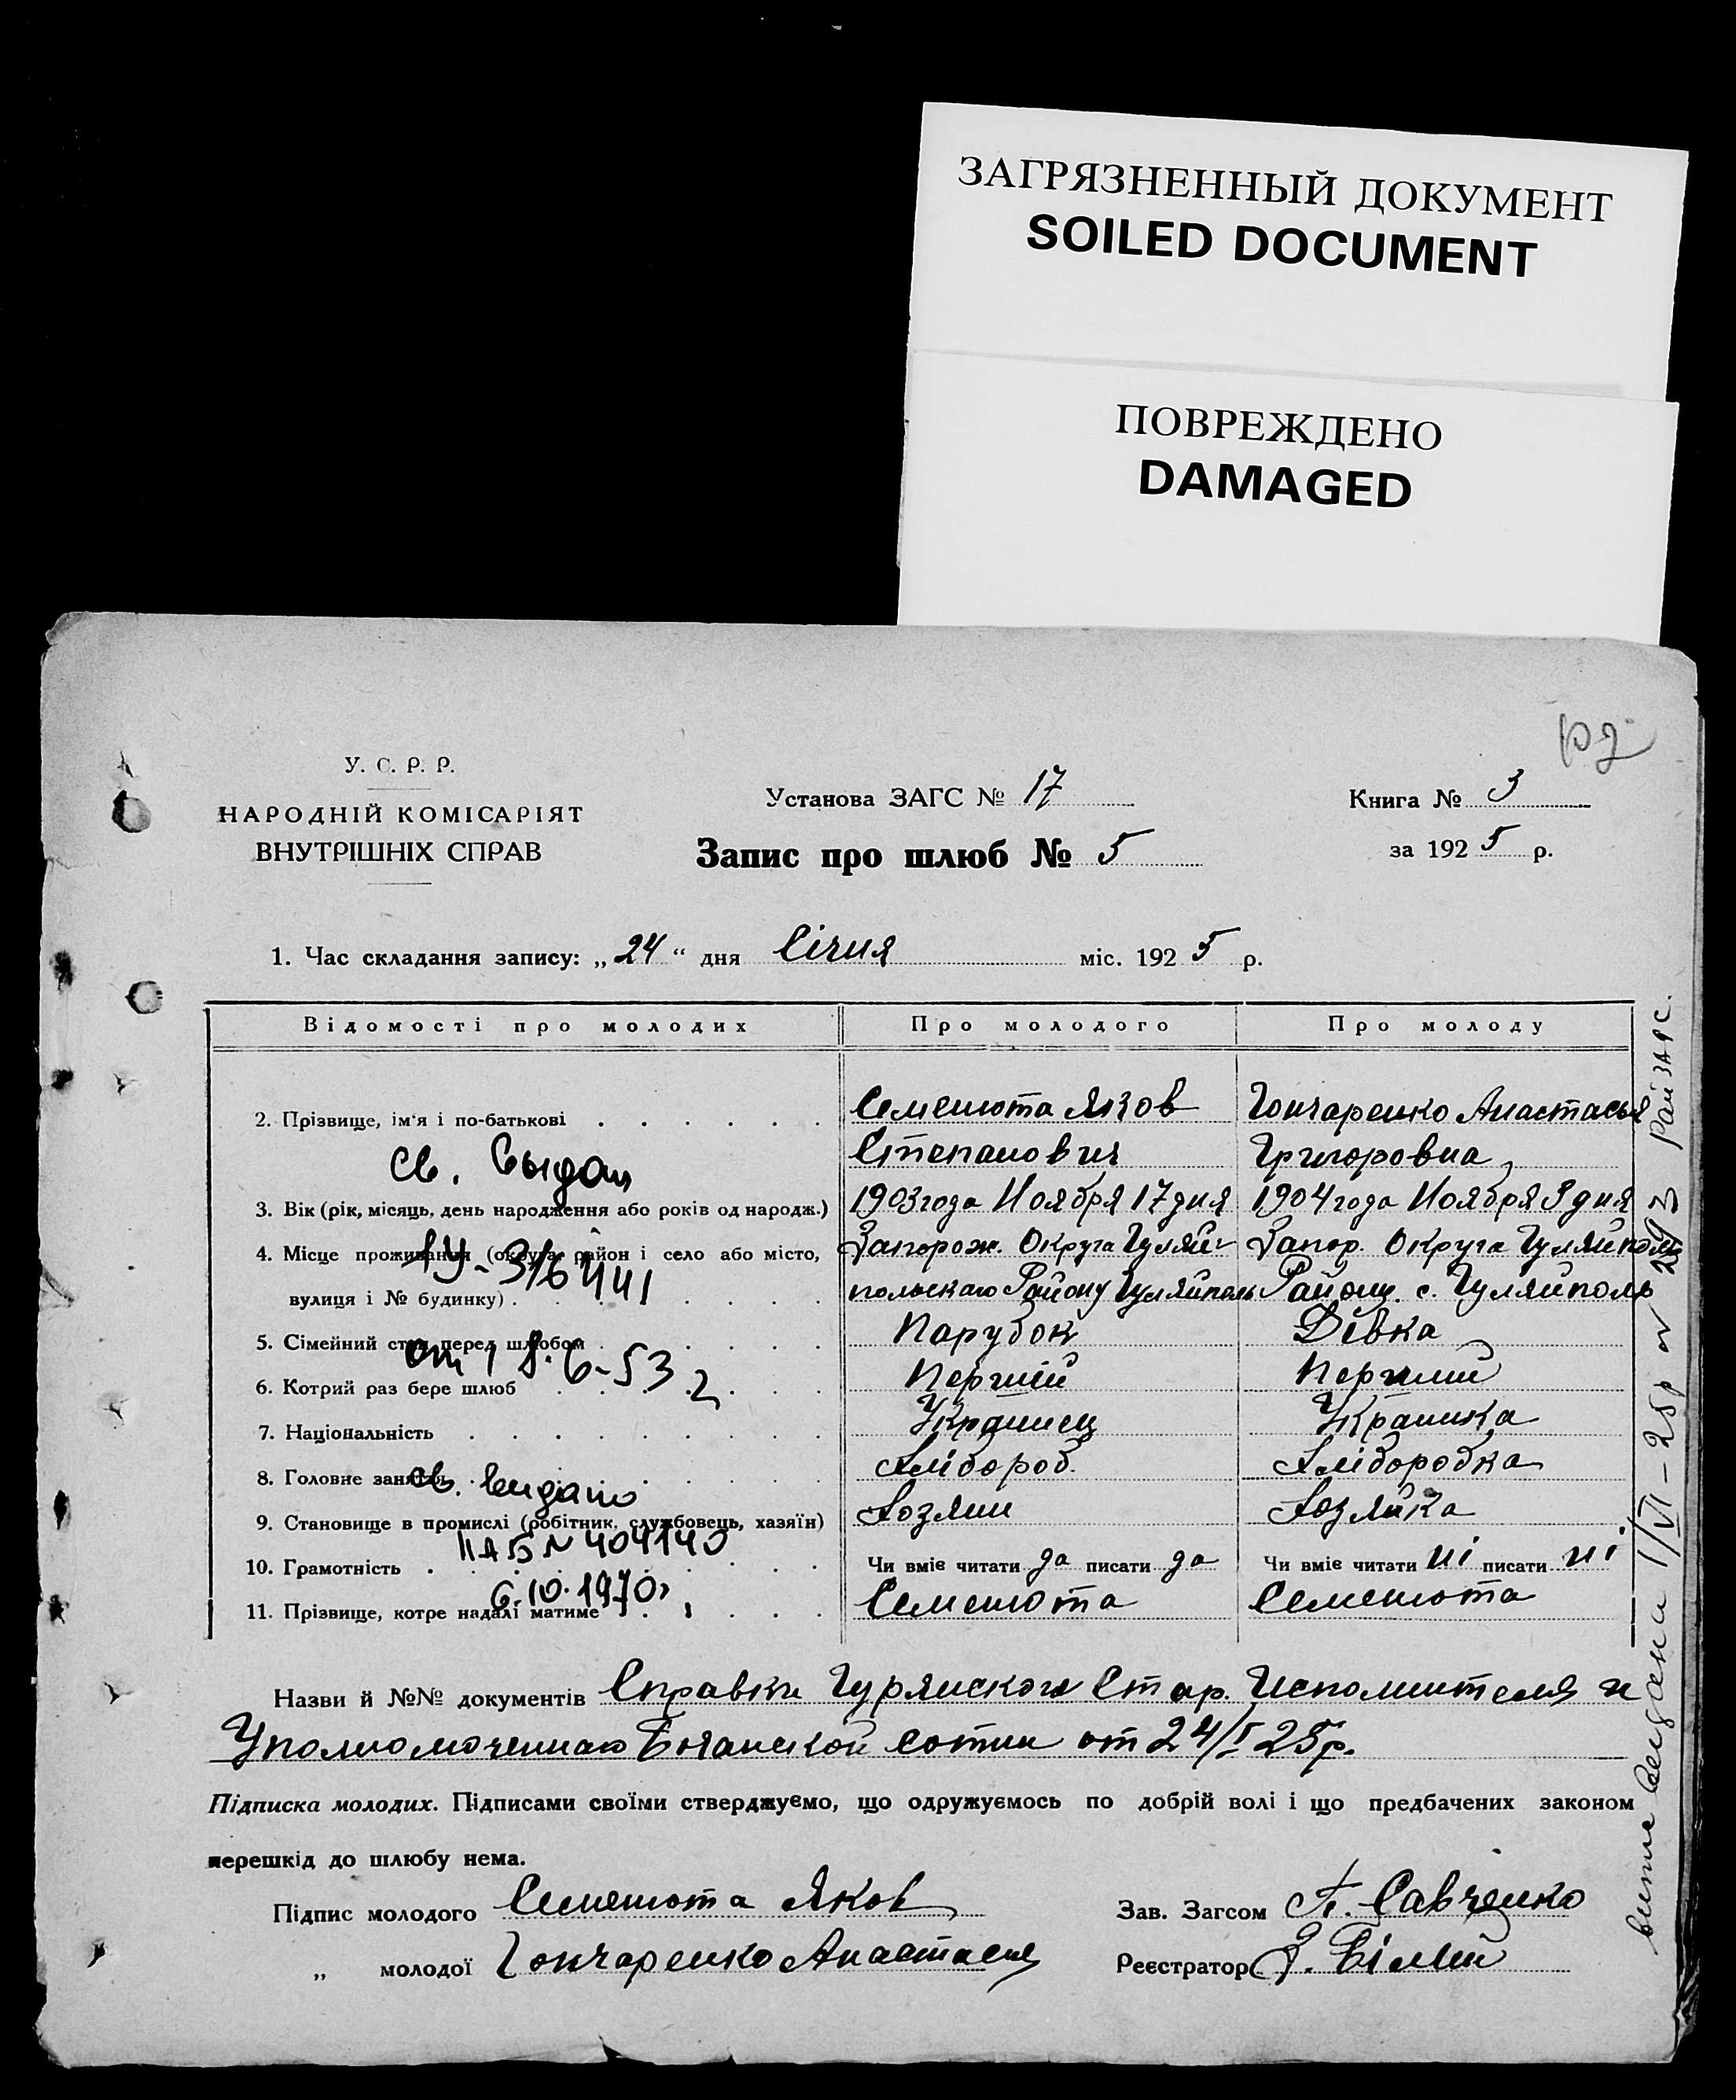 ЗАГРЯЗНЕННЫЙ ДОКУМЕНТ
SOILED DOCUMENT
ПОВРЕЖДЕНО
DAMAGED
У. С. Р. Р.
НАРОДНІЙ КОМІСАРІЯТ
ВНУТРІШНІХ СПРАВ
Установа ЗАГС № 17
Запис про шлюб № 5
Книга № 3
за 1925 р.
1. Час складання запису: „24“ дня Січня міс. 1925 р.
Відомості про молодих Про молодого Про молоду
2. Прізвище, ім'я і по-батькові Семенюта Яков Гончаренко Анастасья
Степанович Григоровна
Св. выдан
3. Вік (рік, місяць, день народження або років од народж.) 1903 года Ноября 17 дня 1904 года Ноября 9 дня
4. Місце проживання (округа, район і село або місто, Запорож. Округа Гуляй- Запор. Округа Гуляйполь
1У-316441
вулиця і № будинку) польскаго Району Гуляйполь Району с. Гуляйполь
5. Сімейний стан перед шлюбом Парубок Дівка
от 18-6-53 г
6. Котрий раз бере шлюб Перший Перший
7. Національність Украинец Украинка
8. Головне заняття Хлібороб. Хліборобка
св. выдано
9. Становище в промислі (робітник, службовець, хазяїн) Хозяин Хозяйка
ІІАБ N 404140
10. Грамотність Чи вміє читати да писати да Чи вміє читати ні писати ні
6.10.1970г
11. Прізвище, котре надалі матиме Семенюта Семенюта
Назви й №№ документів Справки Гурянского Стар. Исполнителя и
Уполномоченнаго Бочанской сотни от 24/I 25р.
Підписка молодих. Підписами своїми стверджуємо, що одружуємось по добрій волі і що предбачених законом
перешкід до шлюбу нема.
Підпис молодого Семенюта Яков
Зав. Загсом П. Савченко
„ молодої Гончаренко Анастасия
Реєстратор Білий
выданы 1/VI-25р N 293 РайЗАГС.